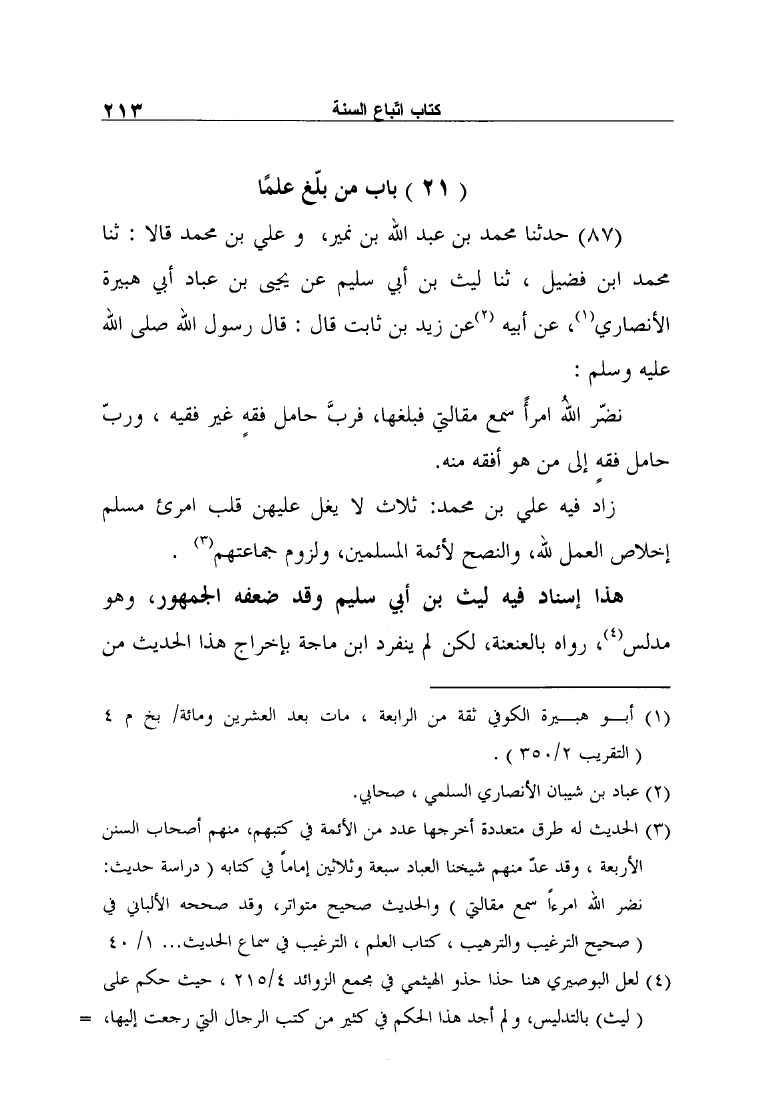 كتاب اتّباع السنة ٢١٣
( ٢١ ) باب من بلّغ علمًا
(٨٧) حدثنا محمد بن عبد الله بن نمير، و علي بن محمد قالا : ثنا
محمد ابن فضيل ، ثنا ليث بن أبي سليم عن يحيى بن عباد أبي هبيرة
الأنصاري(١)، عن أبيه (٢)عن زيد بن ثابت قال : قال رسول الله صلى الله
عليه وسلم :
نضّر اللهُ امرأً سمع مقالتي فبلغها، فربَّ حامل فقهٍ غير فقيه ، وربّ
حامل فقهٍ إلى من هو أفقه منه.
زاد فيه علي بن محمد: ثلاث لا يغل عليهن قلب امرئ مسلم
إخلاص العمل لله، والنصح لأئمة المسلمين، ولزوم جماعتهم(٣) .
هذا إسناد فيه ليث بن أبي سليم وقد ضعفه الجمهور، وهو
مدلس(٤)، رواه بالعنعنة، لكن لم ينفرد ابن ماجة بإخراج هذا الحديث من
(١) أبـــو هبـــيرة الكوفي ثقة من الرابعة ، مات بعد العشرين ومائة/ بخ م ٤
( التقريب ٣٥٠/٢ ) .
(٢) عباد بن شيبان الأنصاري السلمي ، صحابي.
(٣) الحديث له طرق متعددة أخرجها عدد من الأئمة في كتبهم، منهم أصحاب السنن
الأربعة ، وقد عدّ منهم شيخنا العباد سبعة وثلاثين إماماً في كتابه ( دراسة حديث:
نضر الله امرءاً سمع مقالتي ) والحديث صحيح متواتر، وقد صححه الألباني في
( صحيح الترغيب والترهيب ، كتاب العلم ، الترغيب في سماع الحديث... ١/ ٤٠
(٤) لعل البوصيري هنا حذا حذو الهيثمي في مجمع الزوائد ٢١٥/٤ ، حيث حكم على
( ليث) بالتدليس، و لم أجد هذا الحكم في كثير من كتب الرجال التي رجعت إليها، =